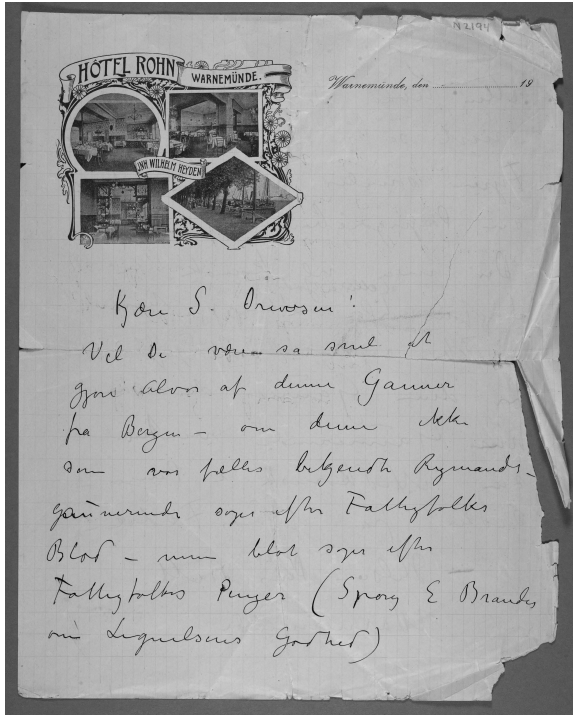 N2194
HÔTEL ROHN
WARNEMÜNDE.
INH. WILHELM HEYDEN
Warnemünde, den 19
Kjære S. Drewsen!
Vil De være så snil at
gjøre alvor af denne Gauner
fra Bergen – om denne ikke
som vor fælles bekjendte Rigmands-
gaunerinde søger efter Fattigfolks
Blod – men blot søger efter
Fattigfolks Penger (Spørg E Brandes
om Godhed)